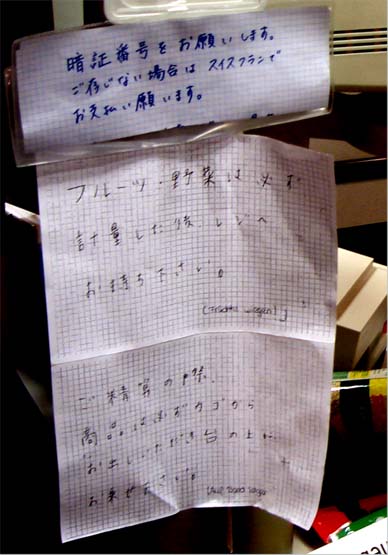 暗証番号をお願いします。
ご存じない場合は スイスフランで
お支払い願います。
フルーツ・野菜は必ず
計量した後レジへ
お持ち下さい。
ご精算の際、
商品は必ずカゴから
お出しいただき台の上に
お乗せ下さい。